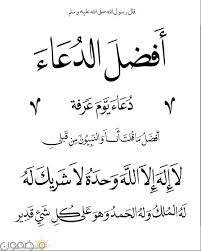 قال رسول الله صلى الله عليه وسلم
أَفْضَلَ الدُعَاءَ
دُعَاءَ يَوْمَ عَرَفَة
أفضل ما قلت أنا والنبيون من قبلي
لا إله إلا الله وحده لا شريك له
له الملك وله الحمد وهو على كل شيء قدير